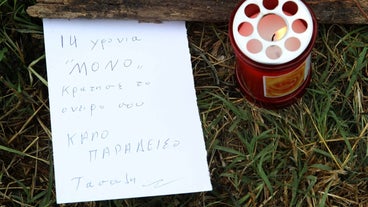 14 χρονια
"ΜΟΝΟ„
κρατησε το
ονειρο σου
ΚΑΛΟ
ΠΑΡΑΔΕΙΣΟ